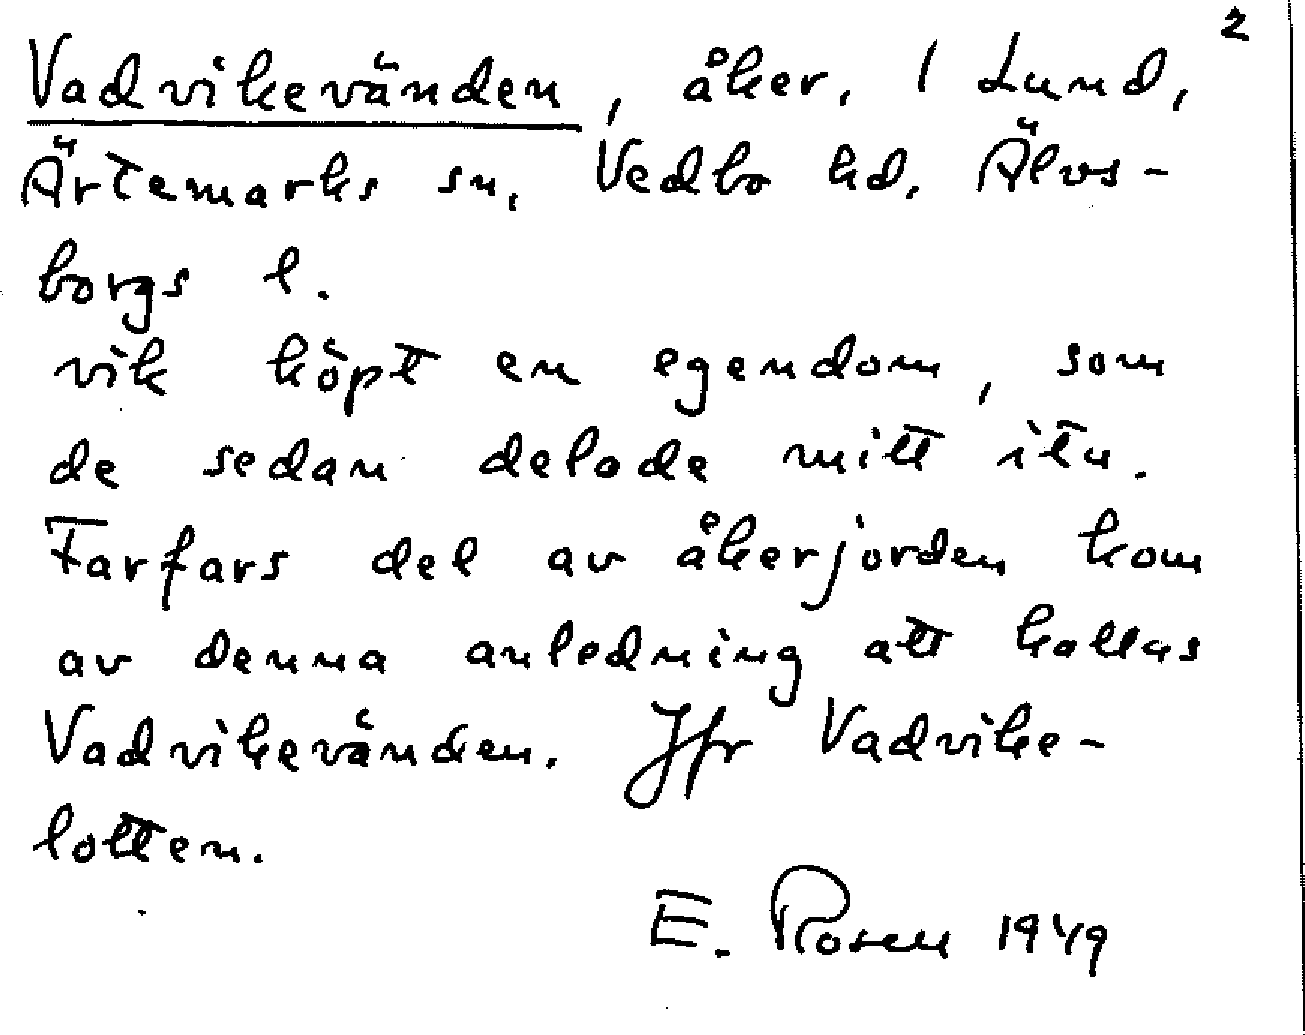 2
Vadvikevänden, åker, 1 Lund,
Ärtemarks sn, Vedbo hd, Älvs-
borgs l.
vik köpt en egendom, som
de sedan delade mitt itu.
Farfars del av åkerjorden kom
av denna anledning att kallas
Vadvikevänden. Jfr Vadvike-
lotten.
E. Rosen 1949